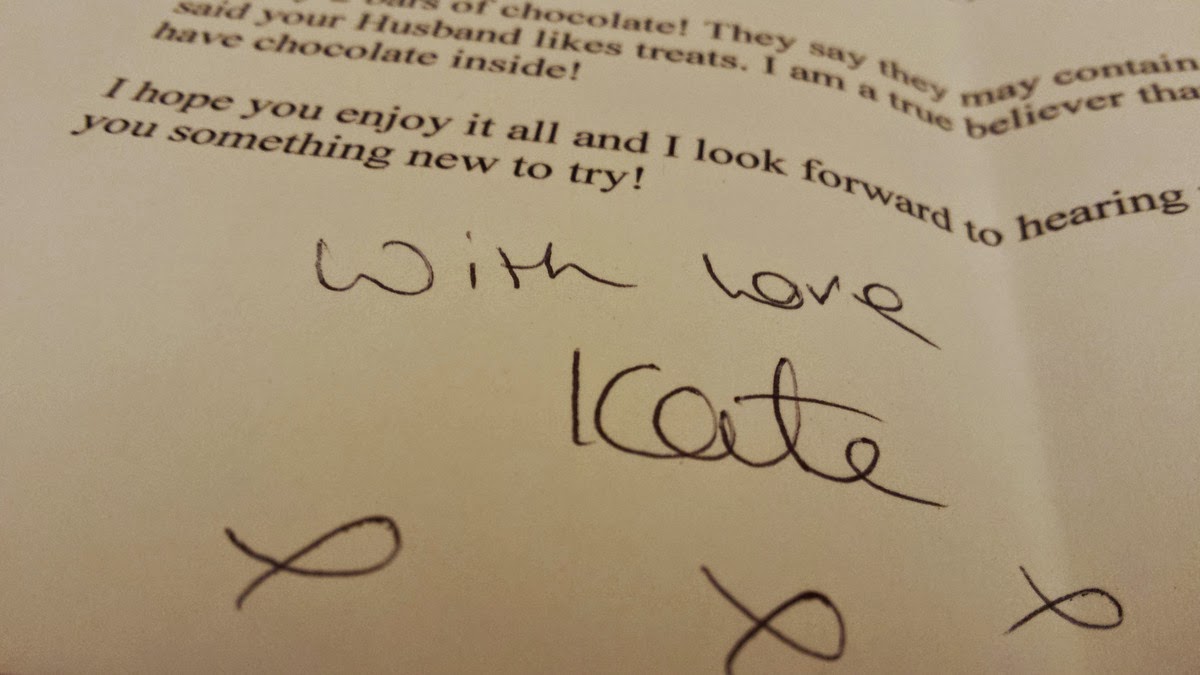 bars of chocolate! They say they may contain
said your Husband likes treats. I am a true believer tha
have chocolate inside!
I hope you enjoy it all and I look forward to hearing
you something new to try!
With love
Kate
x x x